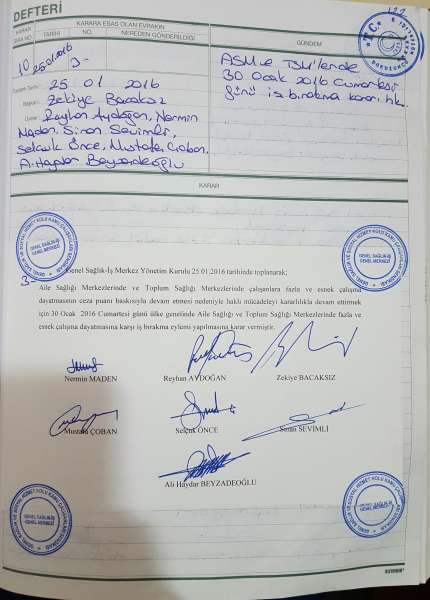 DEFTERİ
KARAR SIRA NO.
KARARA ESAS OLAN EVRAKIN
TARİHİ
NO.
NEREDEN GÖNDERİLDİĞİ
GÜNDEM
10
25.01.2016
3-
Toplantı Tarihi : 25 01 2016
Başkan : Zekiye Bacaksız
Üyeler : Reyhan Aydoğan, Nermin
Maden, Sinan Sevimli,
Selçuk Önce, Mustafa Çoban,
A. Haydar Beyzadeoğlu
ASM ve TSM'lerde
30 Ocak 2016 Cumartesi
günü iş bırakma kararı hk.
KARAR
3-
Genel Sağlık-İş Merkez Yönetim Kurulu 25.01.2016 tarihinde toplanarak;
Aile Sağlığı Merkezlerinde ve Toplum Sağlığı Merkezlerinde çalışanlara fazla ve esnek çalışma
dayatmasının ceza puanı baskısıyla devam etmesi nedeniyle haklı mücadeleyi kararlılıkla devam ettirmek
için 30 Ocak 2016 Cumartesi günü ülke genelinde Aile Sağlığı ve Toplum Sağlığı Merkezlerinde fazla ve
esnek çalışma dayatmasına karşı iş bırakma eylemi yapılmasına karar vermiştir.
Nermin MADEN
Reyhan AYDOĞAN
Zekiye BACAKSIZ
Mustafa ÇOBAN
Selçuk ÖNCE
Sinan SEVİMLİ
Ali Haydar BEYZADEOĞLU
GENEL SAĞLIK-İŞ
GENEL MERKEZİ